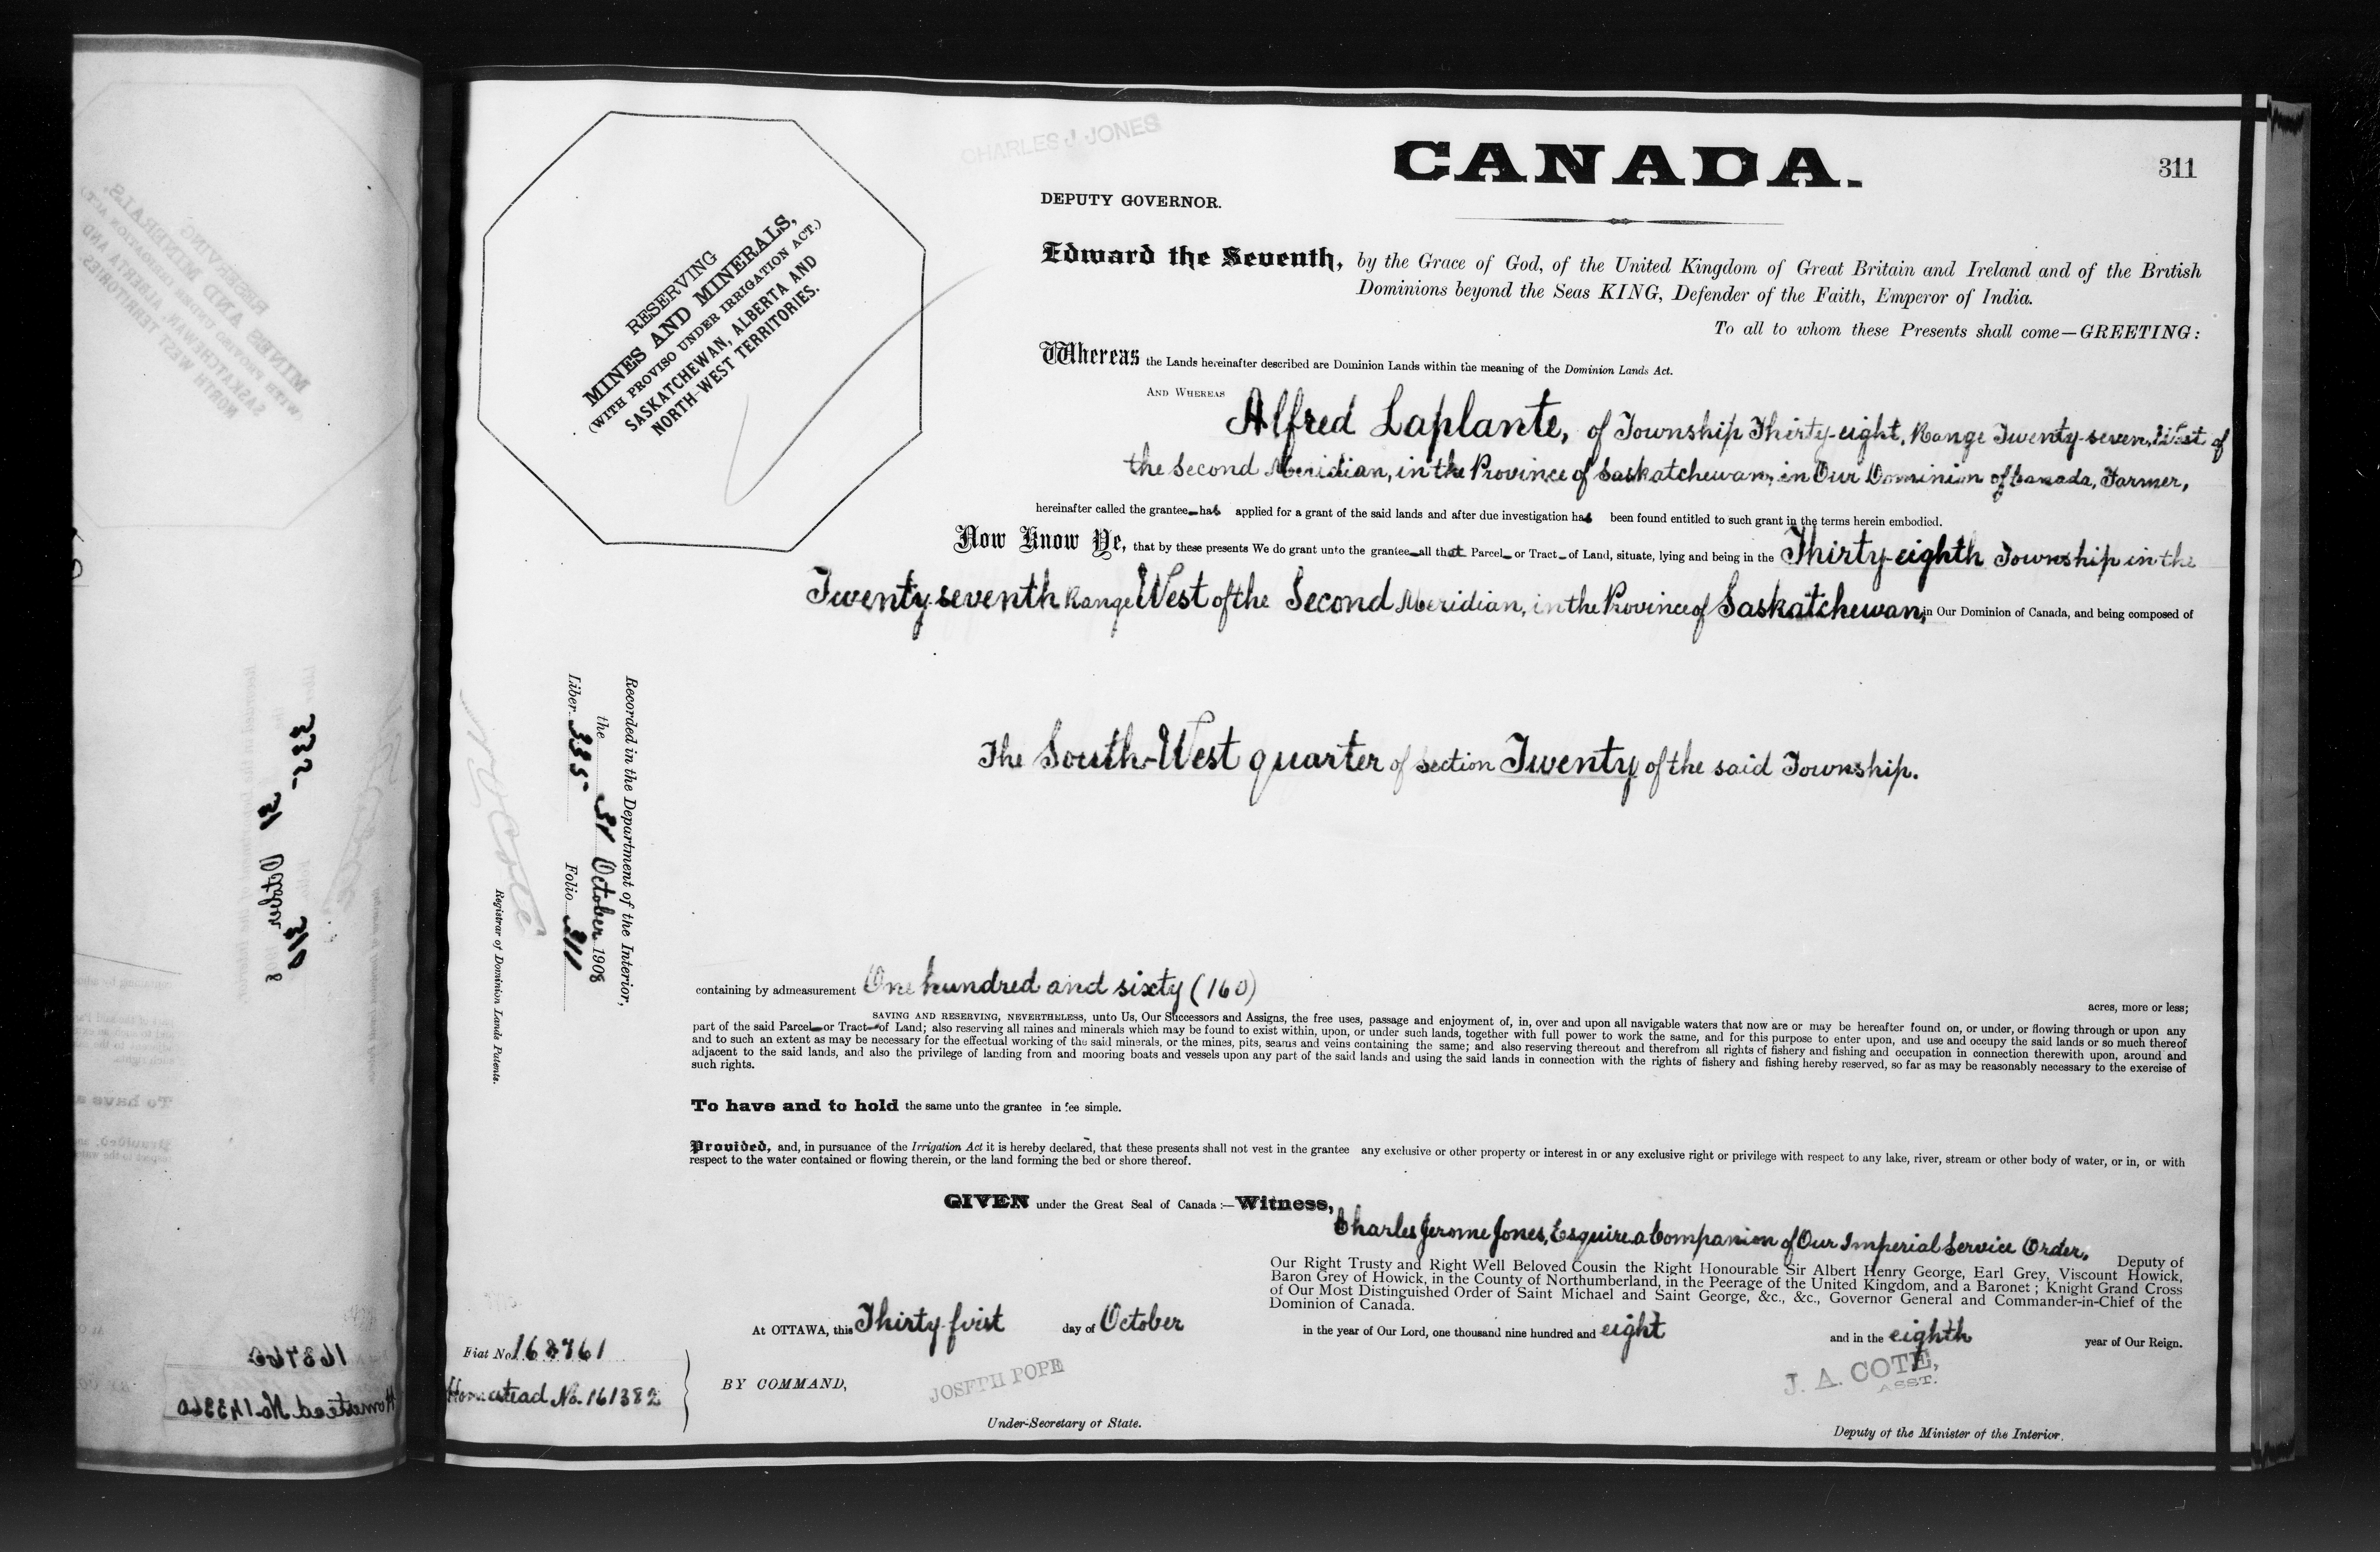 CHARLES J JONES
CANADA.
311
DEPUTY GOVERNOR.
RESERVING
MINES AND MINERALS,
(WITH PROVISO UNDER IRRIGATION ACT.)
SASKATCHEWAN, ALBERTA AND
NORTH-WEST TERRITORIES.
Edward the Seventh, by the Grace of God, of the United Kingdom of Great Britain and Ireland and of the British
Dominions beyond the Seas KING, Defender of the Faith, Emperor of India.
To all to whom these Presents shall come—GREETING:
Whereas the Lands hereinafter described are Dominion Lands within the meaning of the Dominion Lands Act.
AND WHEREAS
Alfred Laplante, of Township Thirty-eight, Range Twenty-seven, West of
the Second Meridian, in the Province of Saskatchewan, in Our Dominion of Canada, Farmer,
hereinafter called the grantee has applied for a grant of the said lands and after due investigation has been found entitled to such grant in the terms herein embodied.
Now Know Ye, that by these presents We do grant unto the grantee all that Parcel or Tract of Land, situate, lying and being in the Thirty-eighth Township in the
Twenty-seventh Range West of the Second Meridian, in the Province of Saskatchewan, in Our Dominion of Canada, and being composed of
The South-West quarter of Section Twenty of the said Township.
Recorded in the Department of the Interior,
the 31 October 1908
Liber 335 Folio 311
Registrar of Dominion Lands Patents.
containing by admeasurement One hundred and sixty (160)
acres, more or less;
SAVING AND RESERVING, NEVERTHELESS, unto Us, Our Successors and Assigns, the free uses, passage and enjoyment of, in, over and upon all navigable waters that now are or may be hereafter found on, or under, or flowing through or upon any
part of the said Parcel or Tract of Land; also reserving all mines and minerals which may be found to exist within, upon, or under such lands, together with full power to work the same, and for this purpose to enter upon, and use and occupy the said lands or so much thereof
and to such an extent as may be necessary for the effectual working of the said minerals, or the mines, pits, seams and veins containing the same; and also reserving thereout and therefrom all rights of fishery and fishing and occupation in connection therewith upon, around and
adjacent to the said lands, and also the privilege of landing from and mooring boats and vessels upon any part of the said lands and using the said lands in connection with the rights of fishery and fishing hereby reserved, so far as may be reasonably necessary to the exercise of
such rights.
To have and to hold the same unto the grantee in fee simple.
Provided, and, in pursuance of the Irrigation Act it is hereby declared, that these presents shall not vest in the grantee any exclusive or other property or interest in or any exclusive right or privilege with respect to any lake, river, stream or other body of water, or in, or with
respect to the water contained or flowing therein, or the land forming the bed or shore thereof.
GIVEN under the Great Seal of Canada:—Witness,
Charles Jerome Jones, Esquire a Companion of Our Imperial Service Order, Deputy of
Our Right Trusty and Right Well Beloved Cousin the Right Honourable Sir Albert Henry George, Earl Grey, Viscount Howick,
Baron Grey of Howick, in the County of Northumberland, in the Peerage of the United Kingdom, and a Baronet; Knight Grand Cross
of Our Most Distinguished Order of Saint Michael and Saint George, &c., &c., Governor General and Commander-in-Chief of the
Dominion of Canada.
At OTTAWA, this Thirty-first day of October in the year of Our Lord, one thousand nine hundred and eight and in the eighth year of Our Reign.
Fiat No. 163761
Homestead No. 161382
BY COMMAND,
JOSEPH POPE
Under-Secretary of State.
J. A. COTE,
ASST.
Deputy of the Minister of the Interior.